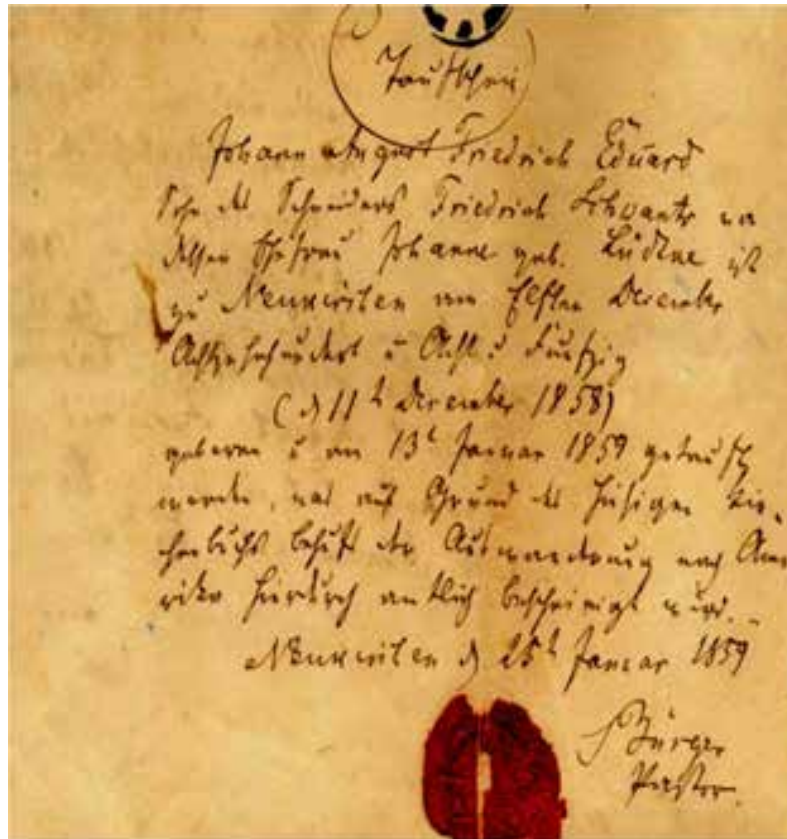 Taufschein
Johann August Friedrich Eduard
Sohn des Schneiders Friedrich Schwantz
dessen Ehefrau Johanne geb. ist
zu am Elften December
Achtzehnhundert u Acht u Funfzig
(d 11t December 1858)
geboren u am 13t Januar 1859 getauft
worden, was auf Grund des hiesigen Kir-
chenbuchs behufs der Auswanderung nach Ame
rika hierdurch amtlich bescheinigt wird.
d 25t Januar 1859
Bürger
Pastor.